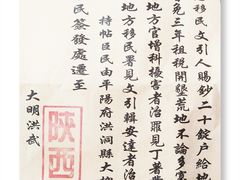 移民文引人賜鈔二十錠戶給地
免三年租稅開墾荒地不論多
地方官增科擾害者治罪見丁著
地方移民眾見文引輯安違者治
持帖臣民由平陽府洪洞縣大槐
民簽發處遷至
大明洪武
陝西